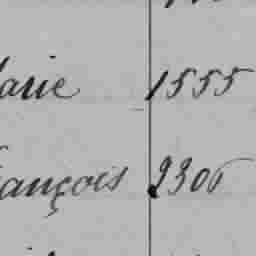 arie 1555
ançois 2306